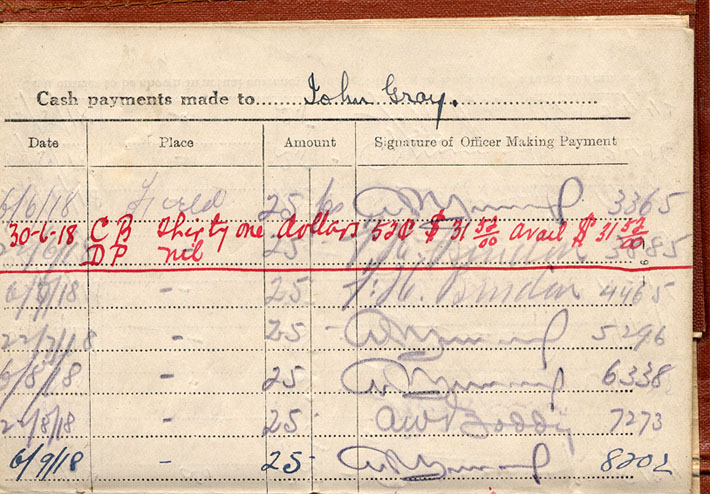 Cash payments made to John Gray.
Date Place Amount Signature of Officer Making Payment
6/6/18 Field 25 3365
30-6-18 CB Thirty one dollars 52c $ 31 52/00 avail $ 31 52/00
DP nil
25 85
6/7/18 - 25 4465
22/7/18 - 25 - 5296
6/8/18 - 25 6338
/8/18 - 25 - AW Boddy 7273
6/9/18 - 25 - 8202